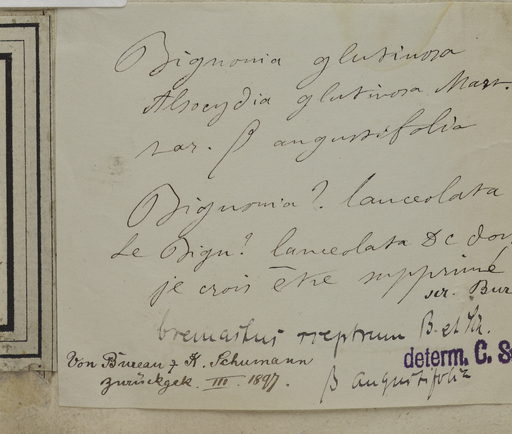 Bignonia glutinosa
Alsocydia glutinosa Mart.
var. β angustifolia
Bignonia? lanceolata
Le Bign? lanceolata DC
je crois être supprimé
scr. Bur
B. et K.
determ. C. S
Von Bureau & K. Schumann
zurückgek. III. 1897.
β angustifolia